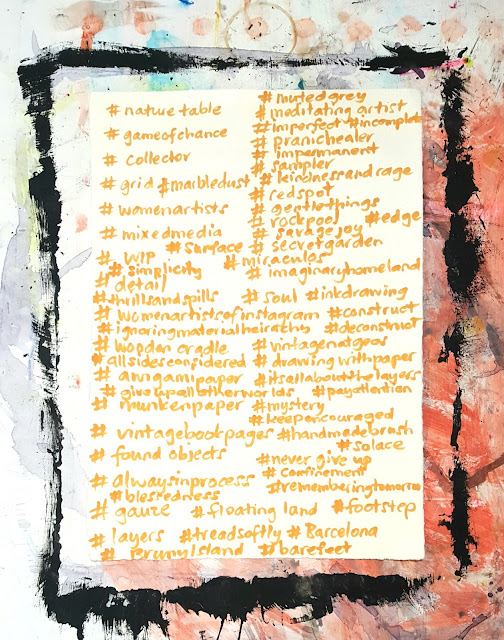 # nature table
# gameofchance
# collector
# grid #marbledust
# womenartists
# mixedmedia
# mutedgrey
# meditating artist
# imperfect #incomplete
# pranichealer
# impermanent
# sampler
# kindnessandrage
# redspot
# gentlethings
# rockpool #edge
# savagejoy
# surface # secretgarden
# WIP # miraculas
# simplicity # imaginaryhomeland
# detail
# thrillsandspills # soul #inkdrawing
# womenartistsofinstagram #construct
# ignoringmaterialheirachy #deconstruct
# wooden cradle # vintagenatgeos
# allsidesconsidered # drawing with paper
# awagamipaper #itsallaboutthelayers
# giveupallotherworlds #payattention
# munkenpaper #mystery
# keepencouraged
# vintagebookpages #handmadebrush
# solace
# found objects #never give up
# confinement
# alwaysinprocess #rememberingtomorrow
# blessedness
# gauze # floating land #footstep
# layers #treadsoftly # Barcelona
# #barefeet